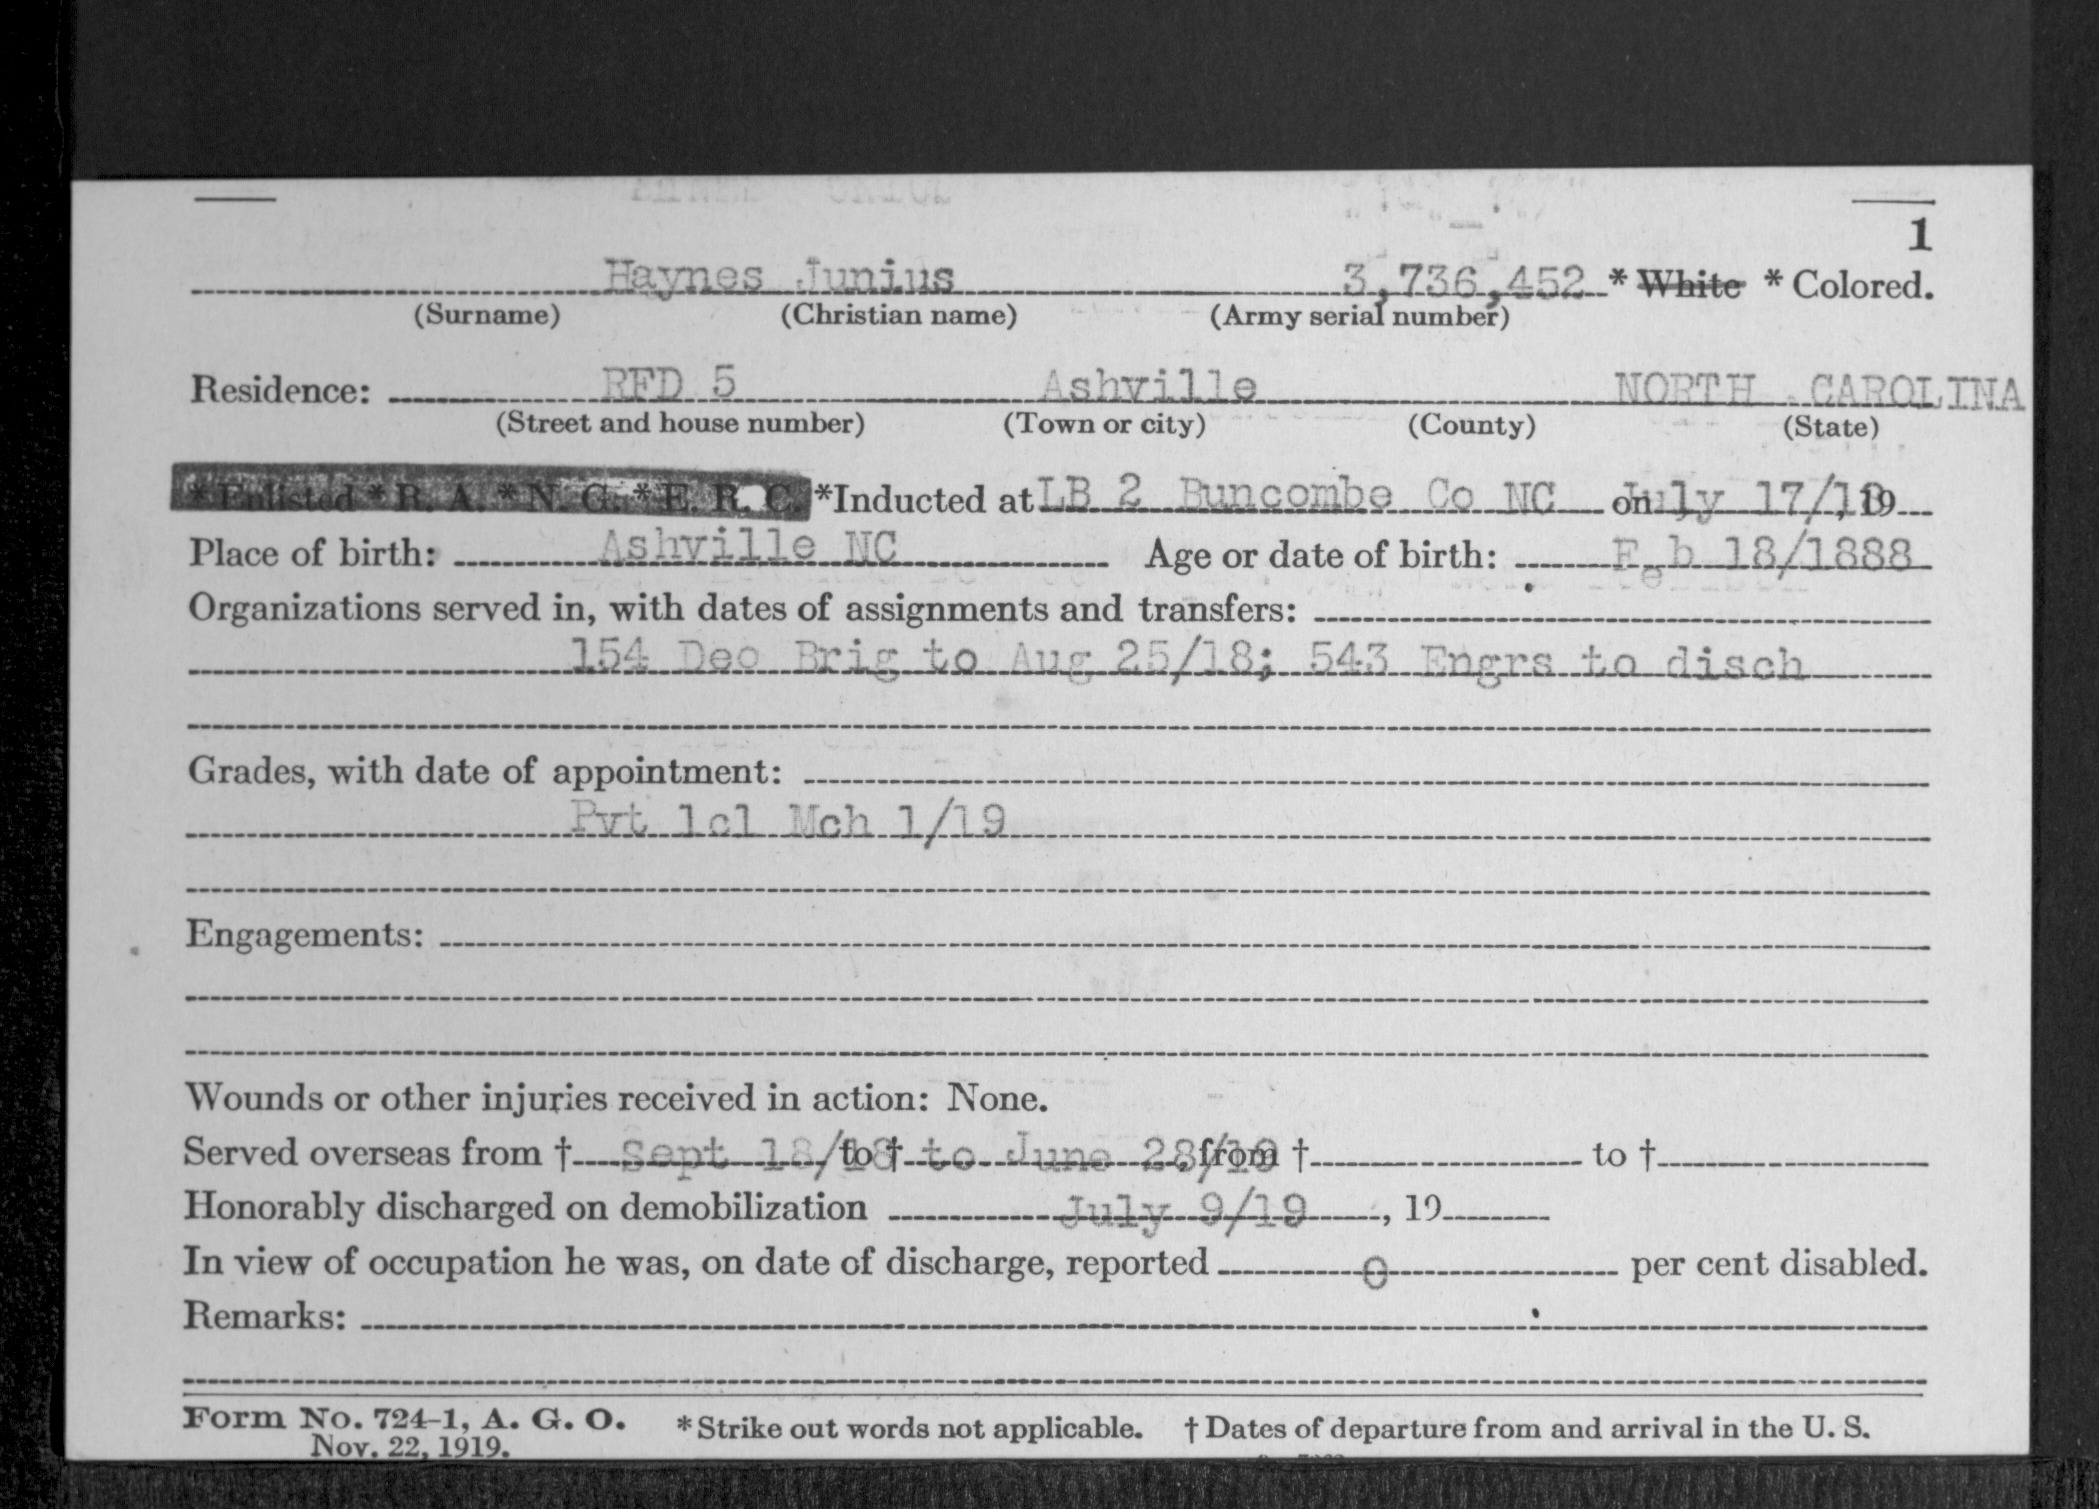 1
Haynes Junius 3,736,452 * White * Colored.
(Surname) (Christian name) (Army serial number)
Residence: RFD 5 Ashville NORTH CAROLINA
(Street and house number) (Town or city) (County) (State)
* Enlisted * R. A. * N. G. * E. R. C. *Inducted at LB 2 Buncombe Co NC on July 17/18, 19
Place of birth: Ashville NC Age or date of birth: Feb 18/1888
Organizations served in, with dates of assignments and transfers:
154 Dep Brig to Aug 25/18; 543 Engrs to disch
Grades, with date of appointment:
Pvt 1cl Mch 1/19
Engagements:
Wounds or other injuries received in action: None.
Served overseas from † Sept 18/18 to † to June 28/19, from † to †
Honorably discharged on demobilization July 9/19, 19
In view of occupation he was, on date of discharge, reported 0 per cent disabled.
Remarks:
Form No. 724-1, A. G. O. * Strike out words not applicable. † Dates of departure from and arrival in the U. S.
Nov. 22, 1919.